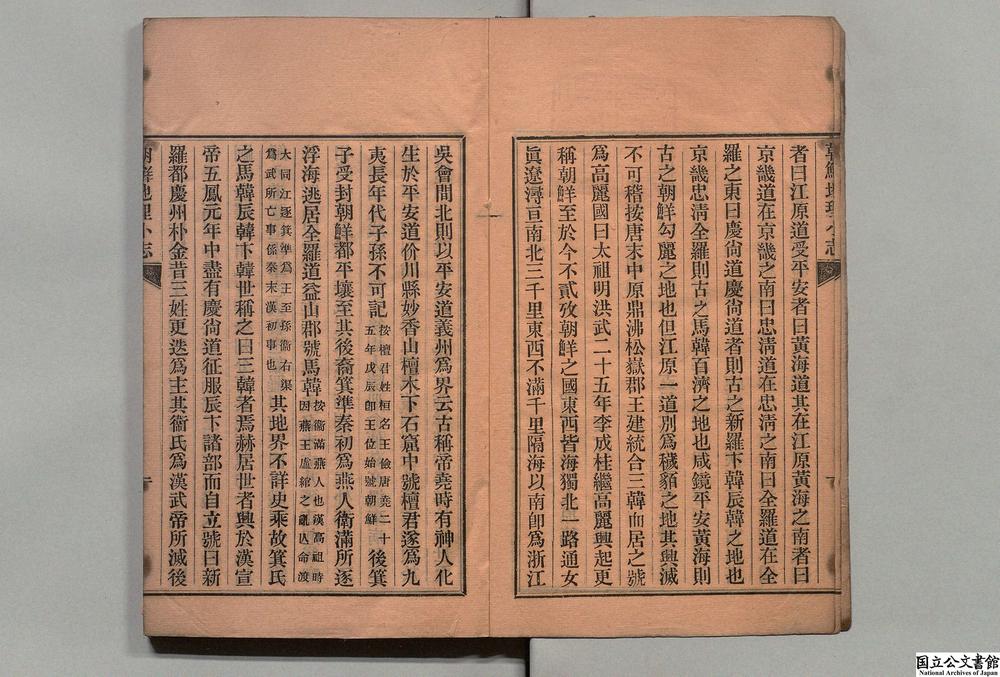 朝鮮地理小志
者曰江原道受平安者曰黃海道其在江原黃海之南者曰
京畿道在京畿之南曰忠淸道在忠淸之南曰全羅道在全
羅之東曰慶尙道慶尙道者則古之新羅卞韓辰韓之地也
京畿忠淸全羅則古之馬韓百濟之地也咸鏡平安黃海則
古之朝鮮勾麗之地也但江原一道別爲穢貊之地其興滅
不可稽按唐末中原鼎沸松嶽郡王建統合三韓而居之號
爲高麗國曰太祖明洪武二十五年李成桂繼高麗興起更
稱朝鮮至於今不貳攷朝鮮之國東西皆海獨北一路通女
眞遼潯亘南北三千里東西不滿千里隔海以南卽爲浙江
吳會間北則以平安道義州爲界云古稱帝堯時有神人化
生於平安道价川縣妙香山檀木下石窟中號檀君遂爲九
夷長年代子孫不可記按檀君姓桓名王儉唐堯二十五年戊辰卽王位始號朝鮮後箕
子受封朝鮮都平壤至其後裔箕準秦初爲燕人衞滿所逐
浮海逃居全羅道益山郡號馬韓按衞滿燕人也漢高祖時因燕王盧綰之亂亾命渡
大同江逐箕準爲王至孫衞右渠爲武所亡事係秦末漢初事也其地界不詳史乘故箕氏
之馬韓辰韓卞韓世稱之曰三韓者焉赫居世者興於漢宣
帝五鳳元年中盡有慶尙道征服辰卞諸部而自立號曰新
羅都慶州朴金昔三姓更迭爲主其衞氏爲漢武帝所滅後
朝鮮地理小志
国立公文書館
National Archives of Japan